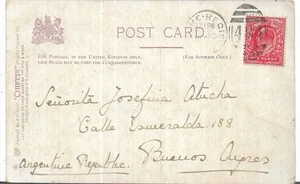 POST CARD.
FOR POSTAGE, IN THE UNITED KINGDOM ONLY,
THIS SPACE MAY BE USED FOR CORRESPONDENCE.
(FOR ADDRESS ONLY.)
"OILETTE"
Señorita Josefina Atucha
Calle Esmeralda 188
Argentine Republic. Buenos Ayres